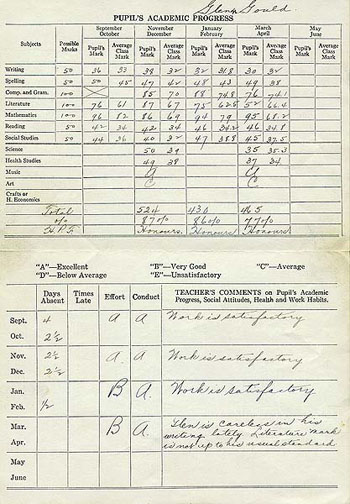 Glenn Gould
PUPIL'S ACADEMIC PROGRESS
Subjects Possible Marks September October Pupil's Mark Average Class Mark November December Pupil's Mark Average Class Mark January February Pupil's Mark Average Class Mark March April Pupil's Mark Average Class Mark May June Pupil's Mark Average Class Mark
Writing 50 36 33 39 32 32 31.8 30 32
Spelling 50 50 45 47 42 48 43 49 38
Comp. and Gram. 100 85 70 88 74.8 76 74.1
Literature 100 76 61 87 67 75 62.5 52 66.4
Mathematics 100 96 82 86 69 94 79 95 68.2
Reading 50 42 34 42 34 46 34.2 46 34.8
Social Studies 50 44 36 40 32 47 38.8 45 37.5
Science 50 39 35 38.3
Health Studies 49 38 37 34
Music
Art C C
Crafts or H. Economics
Total 524 430 465
% 87% 86% 77%
H.P.F. Honours. Honours Honours.
"A"—Excellent "B"—Very Good "C"—Average
"D"—Below Average "E"—Unsatisfactory
Days Absent Times Late Effort Conduct TEACHER'S COMMENTS on Pupil's Academic Progress, Social Attitudes, Health and Work Habits.
Sept. 4 A A Work is satisfactory
Oct. 2½
Nov. 2½ A A Work is satisfactory
Dec. 2½
Jan. B A. Work is satisfactory
Feb. ½
Mar. B A. Glen is careless in his
writing lately. Literature mark
Apr. is not up to his usual standard
May
June